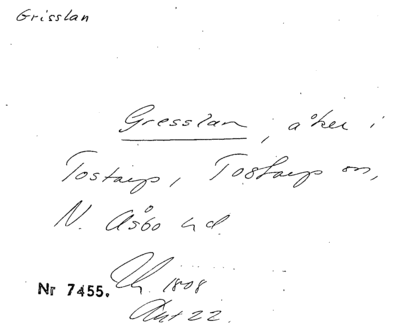 Grisslan
Gresslan, åker i
Tostarp, Tostarp sn,
N. Åsbo hd.
1808
Nr 7455.
Akt 22.